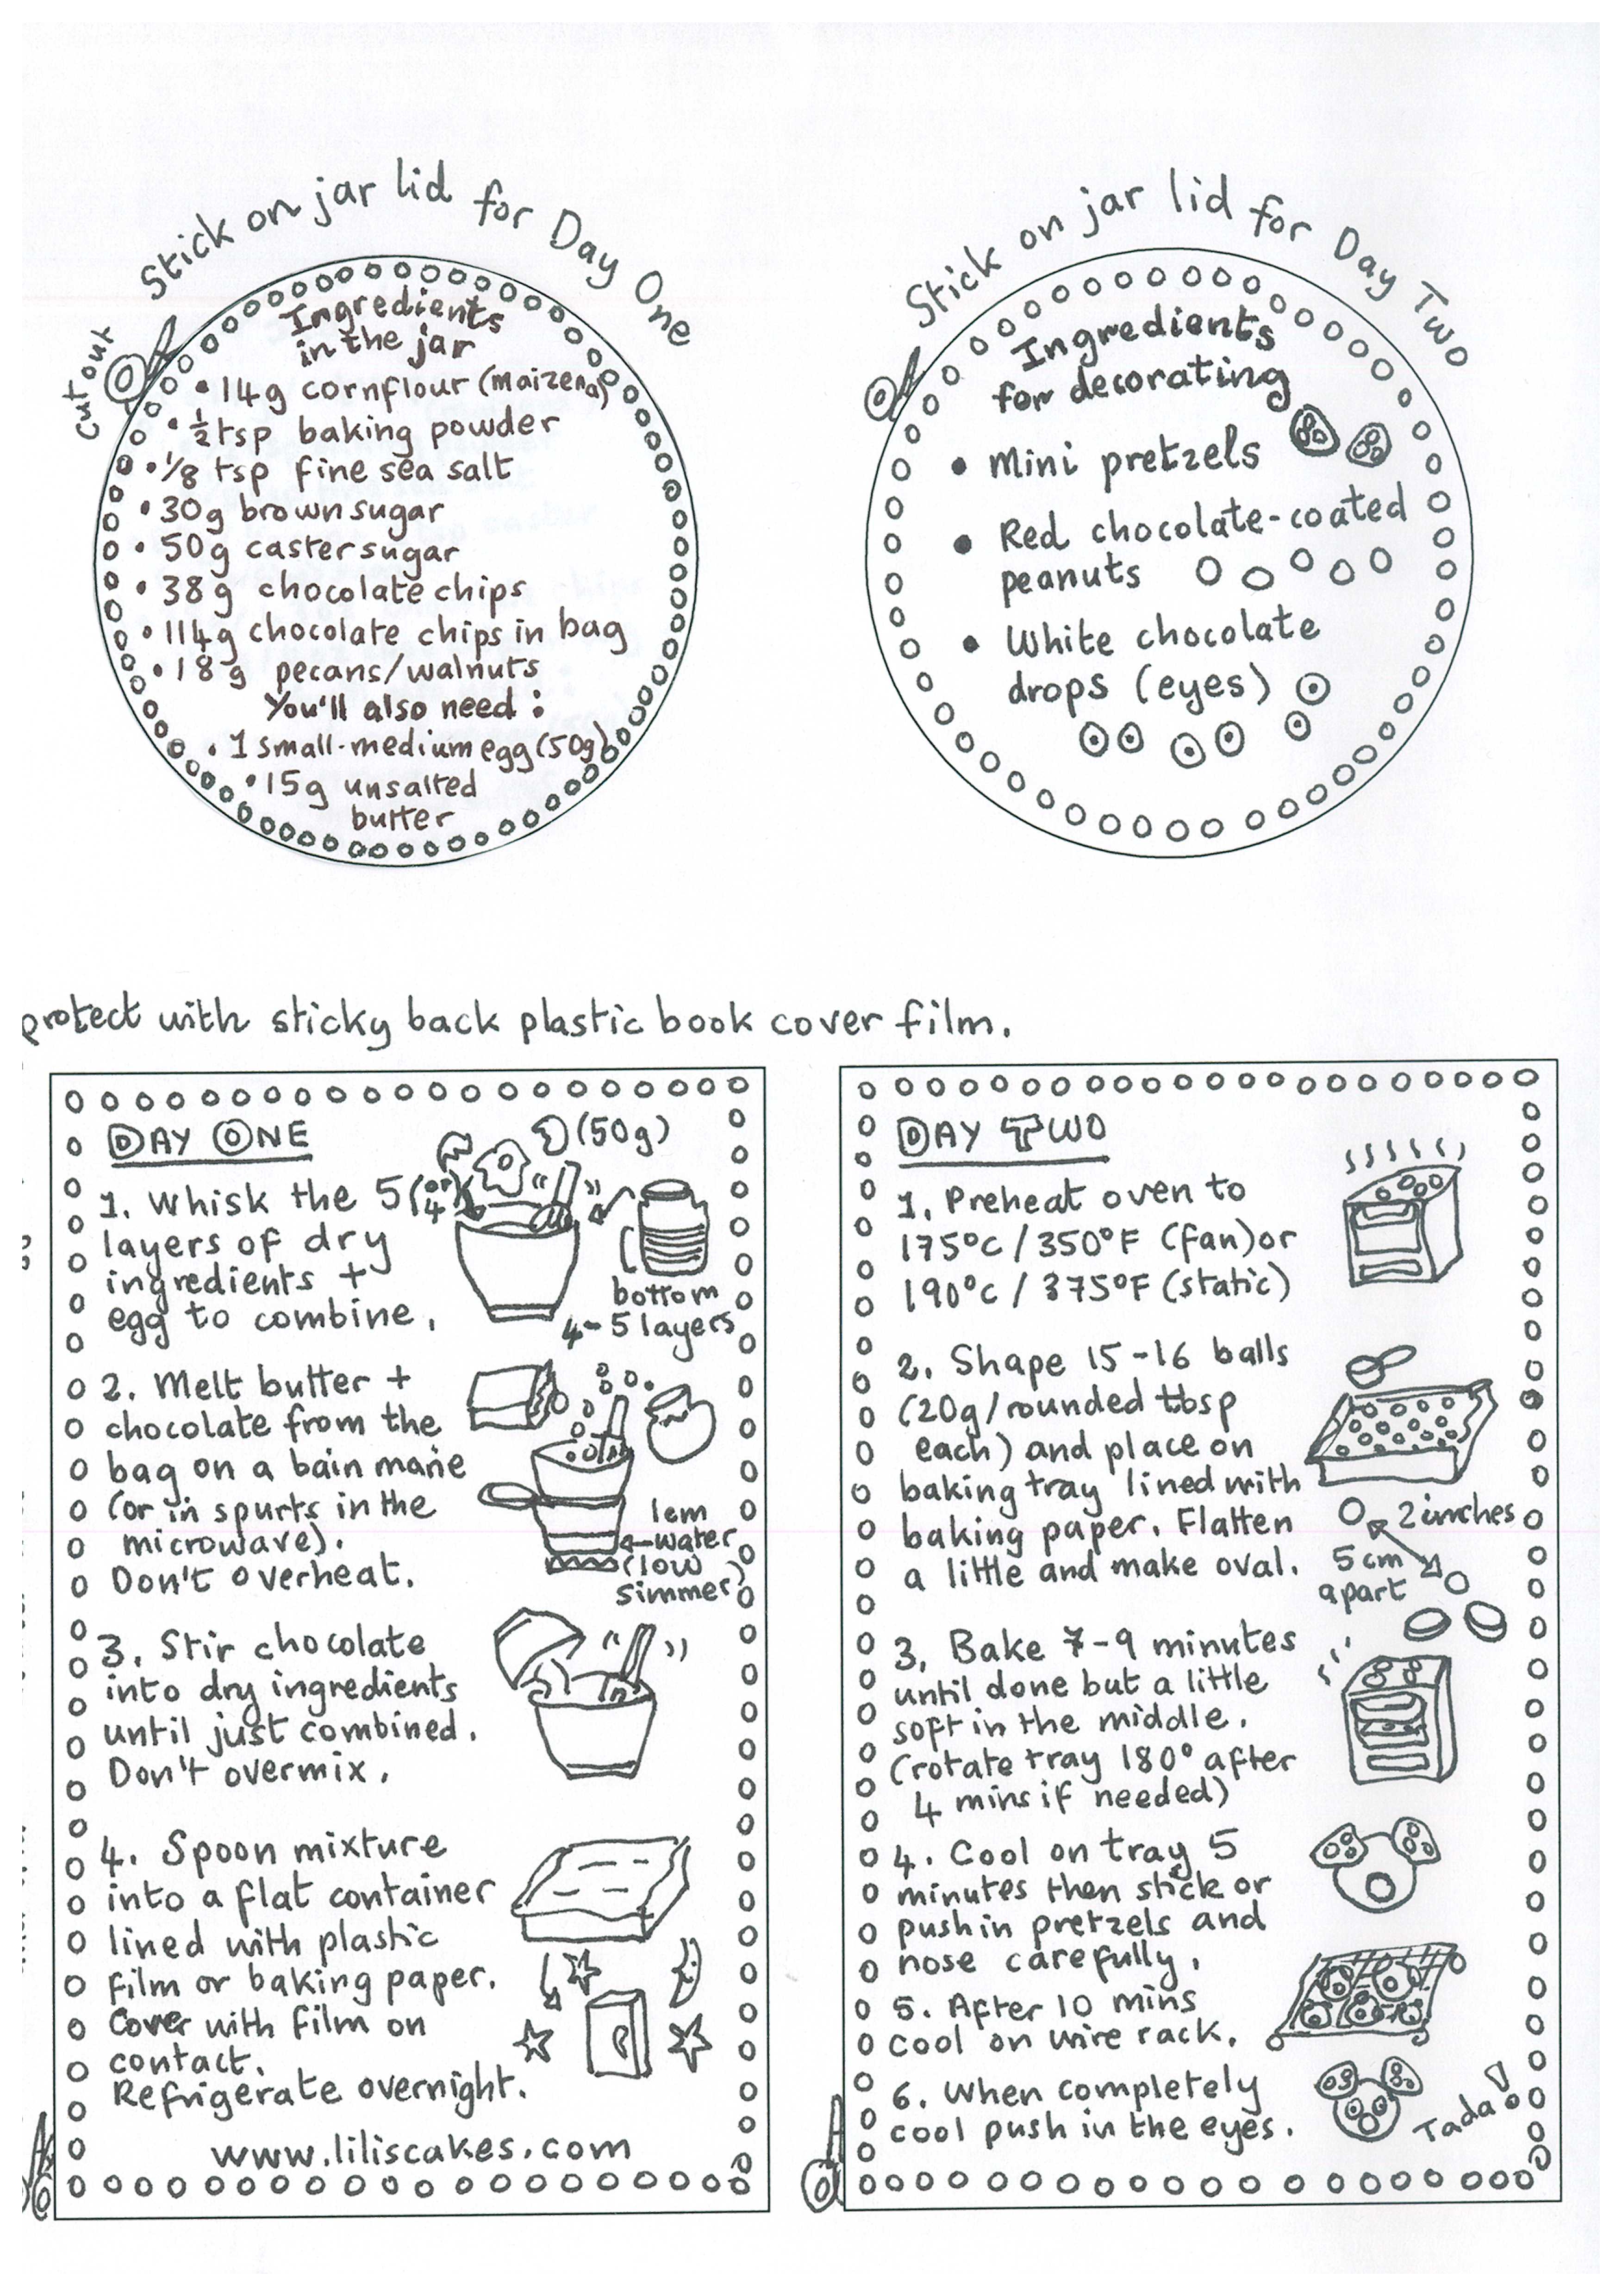 Stick on jar lid for Day One
cut out
Ingredients
in the jar
• 14g cornflour (maizena)
• ½ tsp baking powder
• 1/8 tsp fine sea salt
• 30g brown sugar
• 50g caster sugar
• 38g chocolate chips
• 114g chocolate chips in bag
• 18g pecans/walnuts
You'll also need:
• 1 small-medium egg (50g)
• 15g unsalted
butter
Stick on jar lid for Day Two
Ingredients
for decorating
• Mini pretzels
• Red chocolate-coated
peanuts
• White chocolate
drops (eyes)
protect with sticky back plastic book cover film.
DAY ONE
(50g)
1. Whisk the 5 (or 4)
layers of dry
ingredients +
egg to combine.
bottom
4-5 layers
2. Melt butter +
chocolate from the
bag on a bain marie
(or in spurts in the
microwave).
Don't overheat.
1cm
water
(low
simmer)
3. Stir chocolate
into dry ingredients
until just combined.
Don't overmix.
4. Spoon mixture
into a flat container
lined with plastic
film or baking paper.
Cover with film on
contact.
Refrigerate overnight.
www.liliscakes.com
DAY TWO
1. Preheat oven to
175°C/350°F (fan) or
190°C/375°F (static)
2. Shape 15-16 balls
(20g/rounded tbsp
each) and place on
baking tray lined with
baking paper. Flatten
a little and make oval.
2 inches
5 cm
apart
3. Bake 7-9 minutes
until done but a little
soft in the middle.
(rotate tray 180° after
4 mins if needed)
4. Cool on tray 5
minutes then stick or
push in pretzels and
nose carefully.
5. After 10 mins
cool on wire rack.
6. When completely
cool push in the eyes.
Tada!